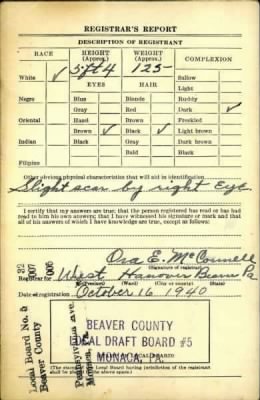 REGISTRAR'S REPORT
DESCRIPTION OF REGISTRANT
RACE HEIGHT (Approx.) WEIGHT (Approx.) COMPLEXION
5 ft 4 125
White ✓ EYES HAIR Sallow
Light
Negro Blue Blonde Ruddy
Gray Red Dark ✓
Oriental Hazel Brown Freckled
Brown ✓ Black ✓ Light brown
Indian Black Gray Dark brown
Bald Black
Filipino
Other obvious physical characteristics that will aid in identification
Slight scar by right Eye
I certify that my answers are true; that the person registered has read or has had
read to him his own answers; that I have witnessed his signature or mark and that
all of his answers of which I have knowledge are true, except as follows:
Ora E. McConnell
(Signature of registrar)
Registrar for West Hanover Beaver Pa
(Precinct) (Ward) (City or county) (State)
Date of registration October 16, 1940
Local Board No. 5
Beaver County
Pennsylvania Ave.
BEAVER COUNTY
LOCAL DRAFT BOARD #5
MONACA, PA.
(The stamp of the Local Board having jurisdiction of the registrant
shall be placed in the above space.)